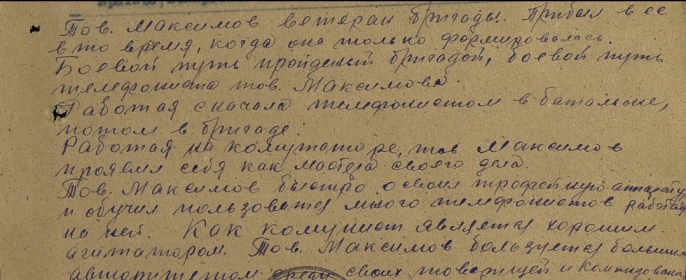 Тов. Максимов ветеран бригады. Прибыл в ее
в то время, когда она только формировалась.
Боевой путь пройденый бригадой, боевой путь
телефониста тов. Максимова.
Работая сначала телефонистом в батальоне,
потом в бригаде.
Работая на комутаторе, тов Максимов
проявил себя как мастера своего дела.
Тов. Максимов быстро освоил трофейную аппаратуру
и обучил пользоватся много телефонистов работая
на ней. Как комунист является хорошим
агитатором. Тов. Максимов пользуется большим
авторитетом среди своих товарищей и